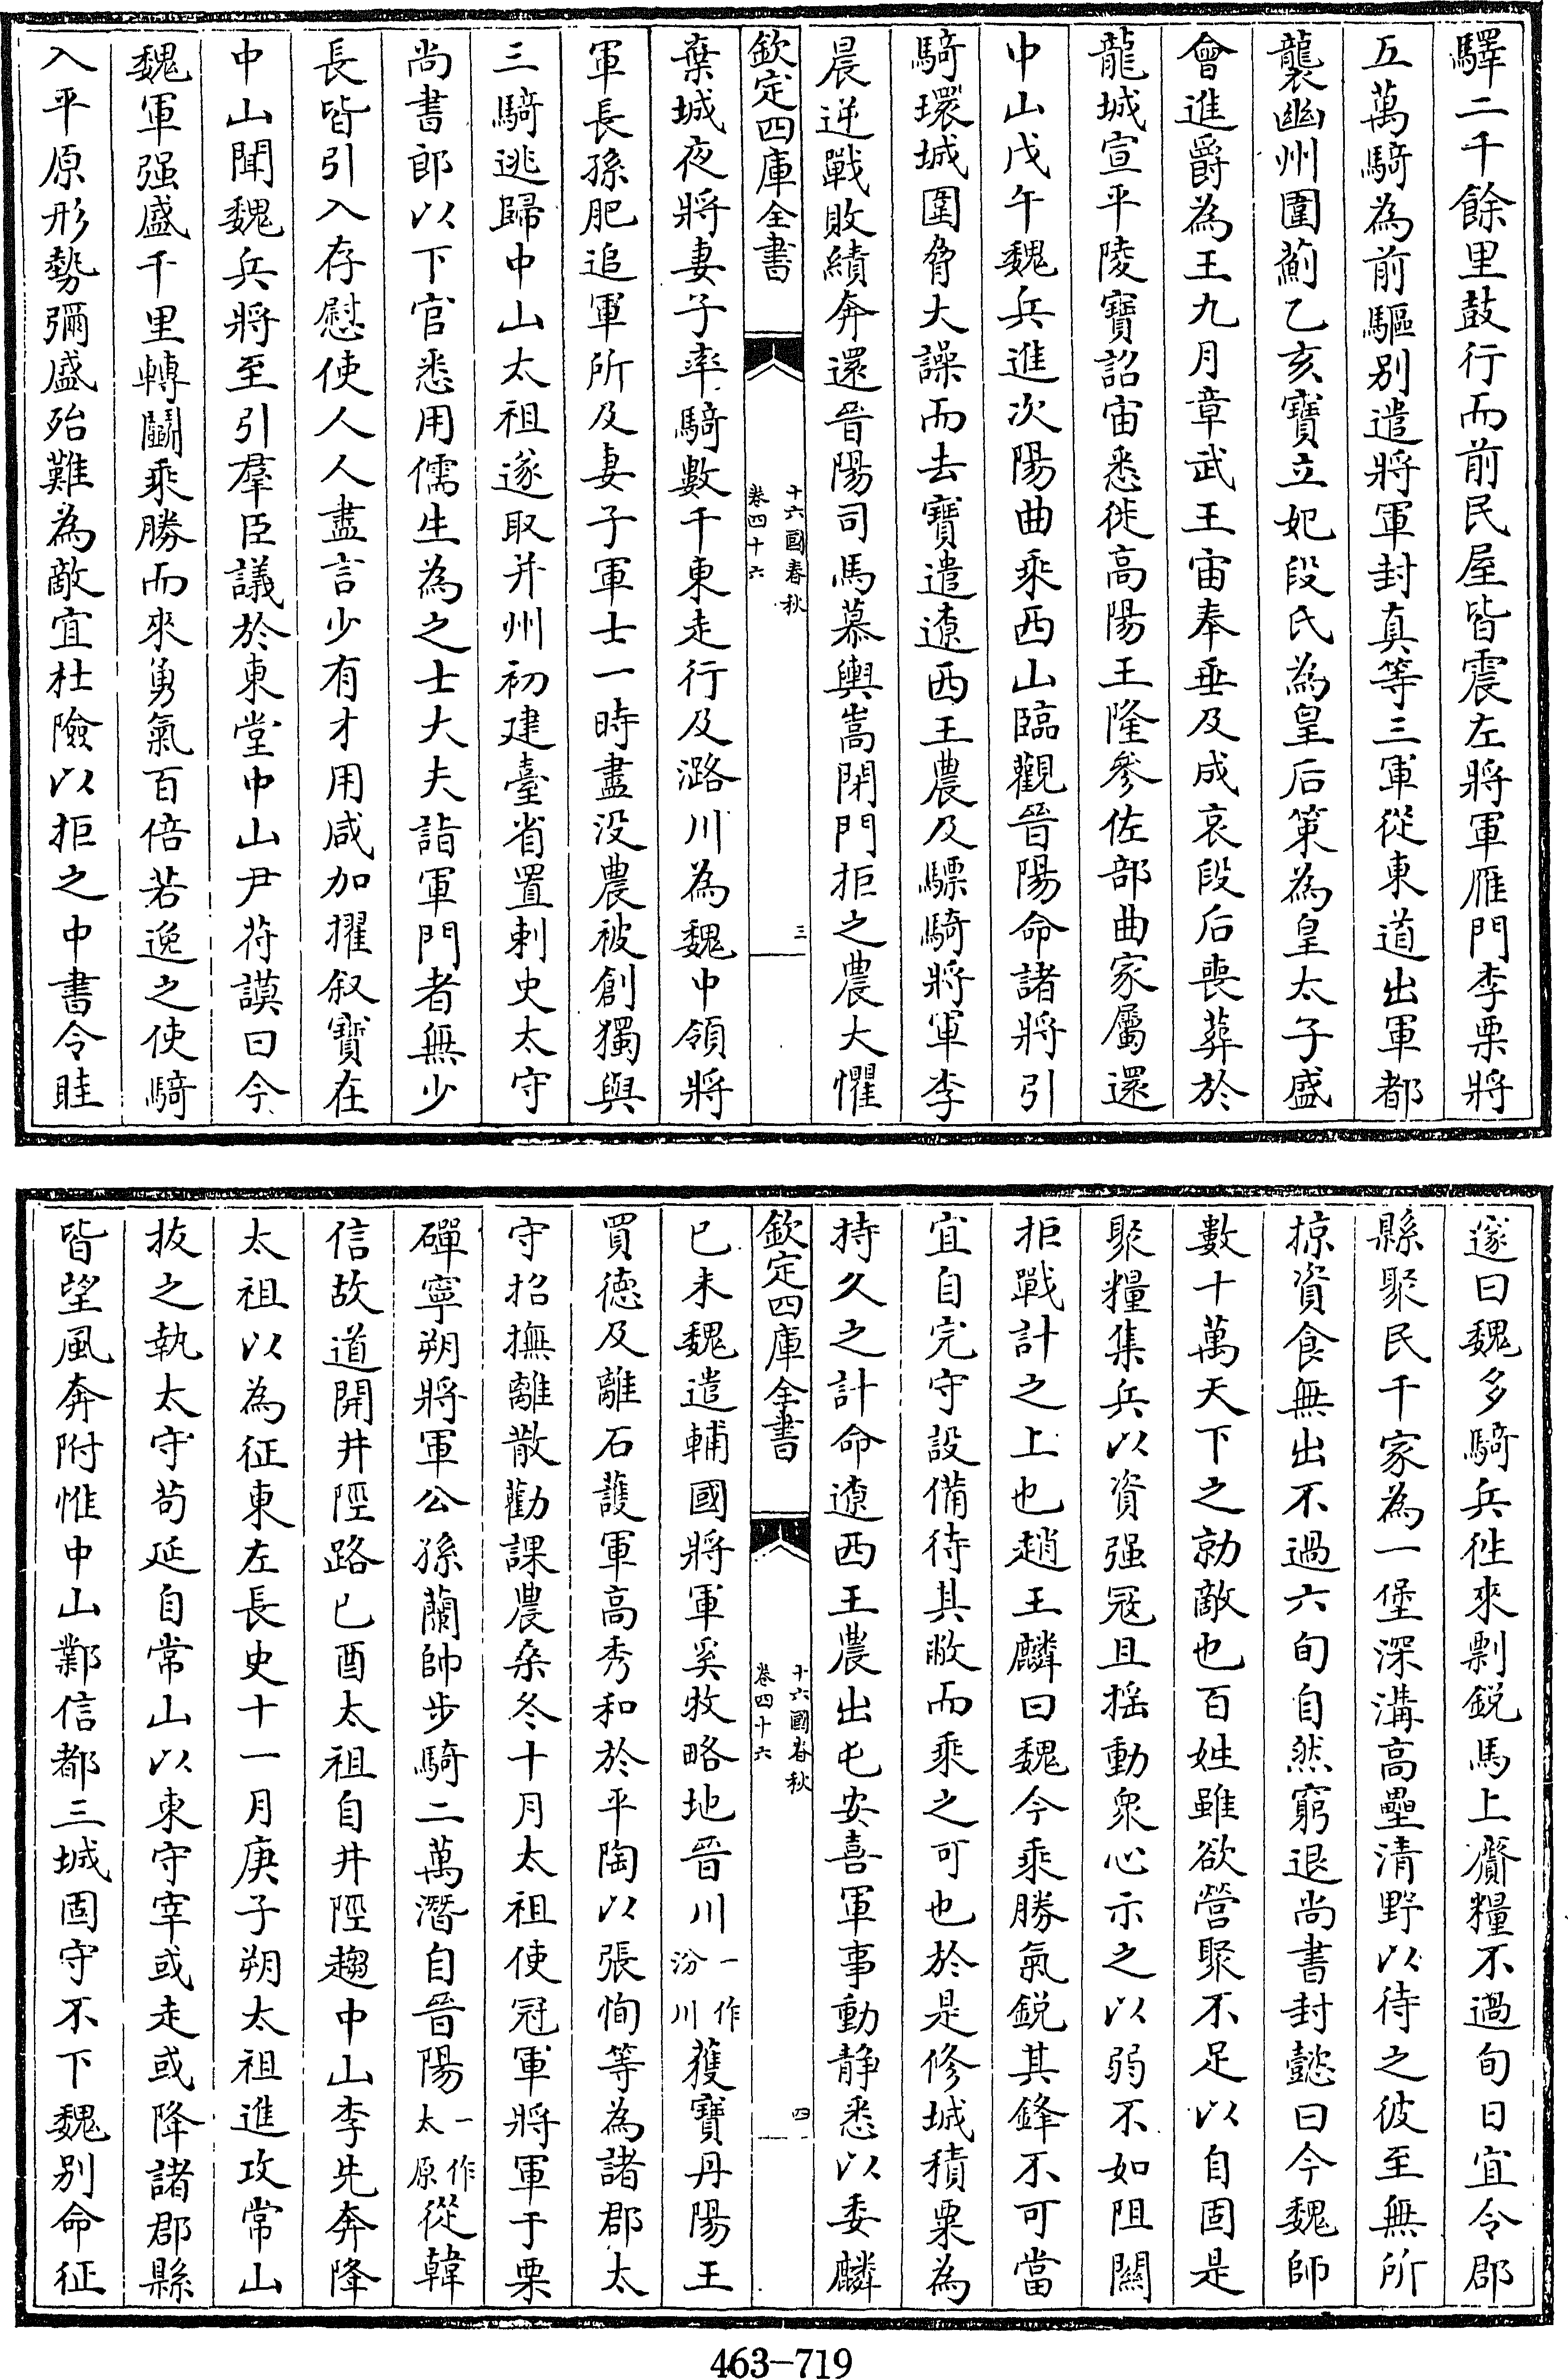 驛二千餘里鼓行而前民屋皆震左將軍雁門李栗將
五萬騎為前驅別遣將軍封真等三軍從東道出軍都
襲幽州圍薊乙亥寶立妃段氏為皇后策為皇太子盛
會進爵為王九月章武王宙奉垂及成哀段后喪葬於
龍城宣平陵寶詔宙悉徙高陽王隆參佐部曲家屬還
中山戊午魏兵進次陽曲乘西山臨觀晉陽命諸將引
騎環城圍脅大譟而去寶遣遼西王農及驃騎將軍李
晨逆戰敗績奔還晉陽司馬慕輿嵩閉門拒之農大懼
欽定四庫全書
十六國春秋
卷四十六
三
棄城夜將妻子率騎數千東走行及潞川為魏中領將
軍長孫肥追軍所及妻子軍士一時盡没農被創獨與
三騎逃歸中山太祖遂取并州初建臺省置刺史太守
尚書郎以下官悉用儒生為之士大夫詣軍門者無少
長皆引入存慰使人人盡言少有才用咸加擢叙寶在
中山聞魏兵將至引羣臣議於東堂中山尹苻謨曰今
魏軍强盛千里轉鬭乘勝而來勇氣百倍若逸之使騎
入平原形勢彌盛殆難為敵宜杜險以拒之中書令眭
邃曰魏多騎兵徃來剽銳馬上齎糧不過旬日宜令郡
縣聚民千家為一堡深溝高壘清野以待之彼至無所
掠資食無出不過六旬自然窮退尚書封懿曰今魏師
數十萬天下之勍敵也百姓雖欲營聚不足以自固是
聚糧集兵以資强冦且揺動衆心示之以弱不如阻關
拒戰計之上也趙王麟曰魏今乘勝氣銳其鋒不可當
宜自完守設備待其敝而乘之可也於是修城積粟為
持久之計命遼西王農出屯安喜軍事動静悉以委麟
欽定四庫全書
十六國春秋
卷四十六
四
已未魏遣輔國將軍奚牧略地晉川一作汾川獲寶丹陽王
買德及離石護軍高秀和於平陶以張恂等為諸郡太
守招撫離散勸課農桑冬十月太祖使冠軍將軍于栗
磾寧朔將軍公孫蘭帥步騎二萬潛自晉陽一作太原從韓
信故道開井陘路已酉太祖自井陘趨中山李先奔降
太祖以為征東左長史十一月庚子朔太祖進攻常山
拔之執太守苟延自常山以東守宰或走或降諸郡縣
皆望風奔附惟中山鄴信都三城固守不下魏別命征
463-719